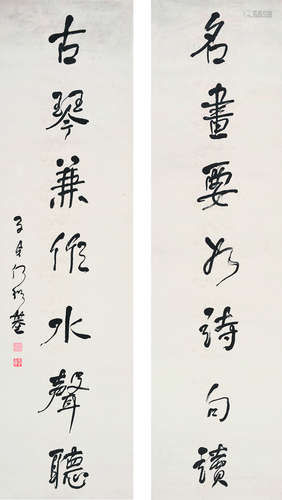 名畫要如詩句讀
古琴兼作水聲聽
子貞何紹基